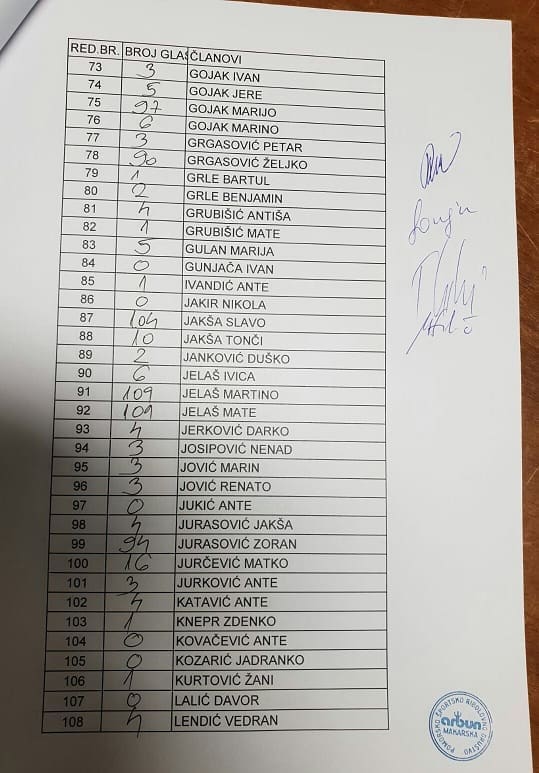 RED.BR. BROJ GLAS ČLANOVI
73 3 GOJAK IVAN
74 5 GOJAK JERE
75 97 GOJAK MARIJO
76 6 GOJAK MARINO
77 3 GRGASOVIĆ PETAR
78 90 GRGASOVIĆ ŽELJKO
79 1 GRLE BARTUL
80 2 GRLE BENJAMIN
81 4 GRUBIŠIĆ ANTIŠA
82 1 GRUBIŠIĆ MATE
83 5 GULAN MARIJA
84 0 GUNJAČA IVAN
85 1 IVANDIĆ ANTE
86 0 JAKIR NIKOLA
87 104 JAKŠA SLAVO
88 10 JAKŠA TONČI
89 2 JANKOVIĆ DUŠKO
90 6 JELAŠ IVICA
91 109 JELAŠ MARTINO
92 109 JELAŠ MATE
93 4 JERKOVIĆ DARKO
94 3 JOSIPOVIĆ NENAD
95 3 JOVIĆ MARIN
96 3 JOVIĆ RENATO
97 0 JUKIĆ ANTE
98 4 JURASOVIĆ JAKŠA
99 94 JURASOVIĆ ZORAN
100 16 JURČEVIĆ MATKO
101 3 JURKOVIĆ ANTE
102 4 KATAVIĆ ANTE
103 1 KNEPR ZDENKO
104 0 KOVAČEVIĆ ANTE
105 0 KOZARIĆ JADRANKO
106 1 KURTOVIĆ ŽANI
107 0 LALIĆ DAVOR
108 4 LENDIĆ VEDRAN
POMORSKO ŠPORTSKO RIBOLOVNO DRUŠTVO
arbun
MAKARSKA